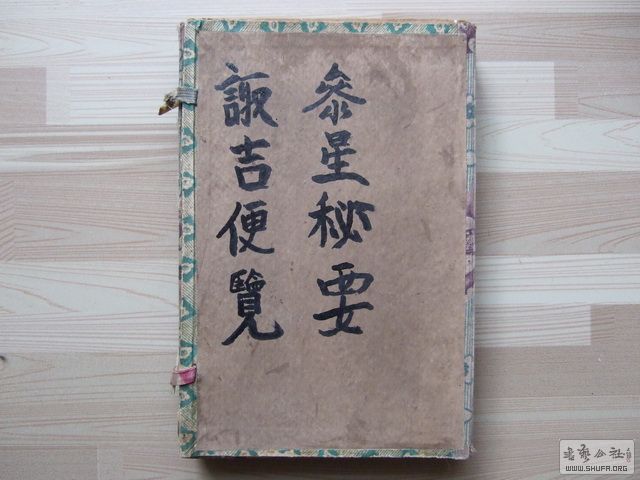 参星秘要
諏吉便覽
書法公社
WWW.SHUFA.ORG